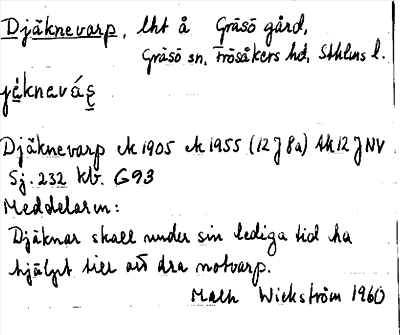 Djäknevarp, lht å Gräsö gård,
Gräsö sn, Frösåkers hd, Sthlms l.
Djäknevarp ek 1905 ek 1955 (12 J 8a) tk 12 J NV
Sj. 232 kb. G93
Meddelaren:
Djäknar skall under sin lediga tid ha
hjälpt till att dra notvarp.
Math Wickström 1960